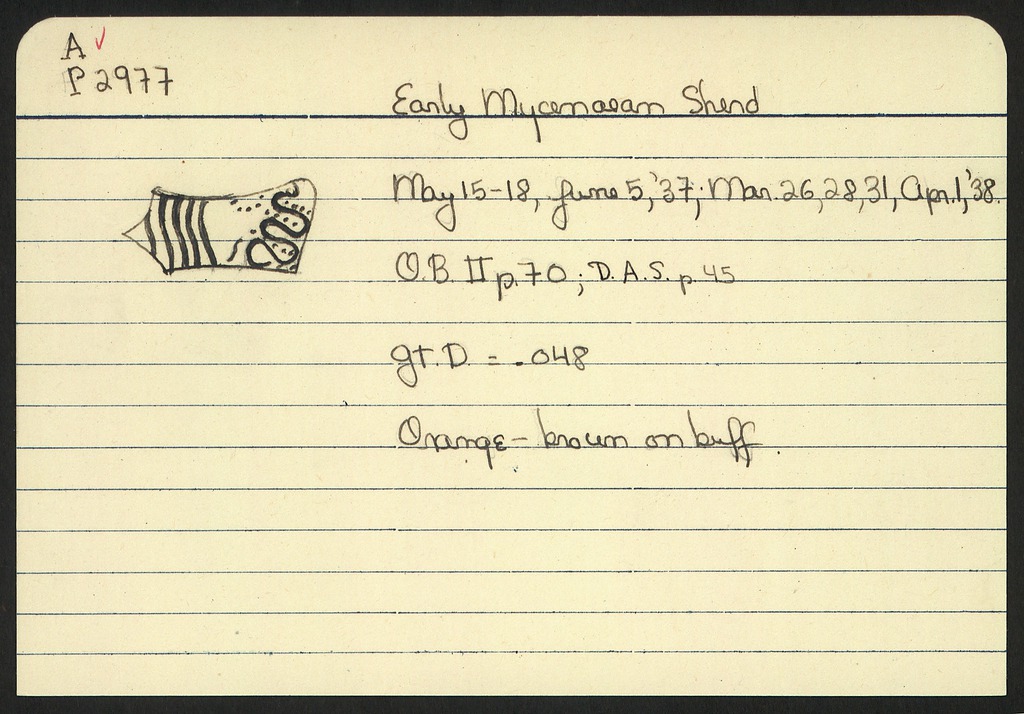 A ✓
P 2977
Early Mycenaean Sherd
May 15-18, June 5, '37; Mar. 26, 28, 31, Apr. 1, '38.
O.B. II p. 70; D.A.S. p. 45
gt. D. = .048
Orange-brown on buff.